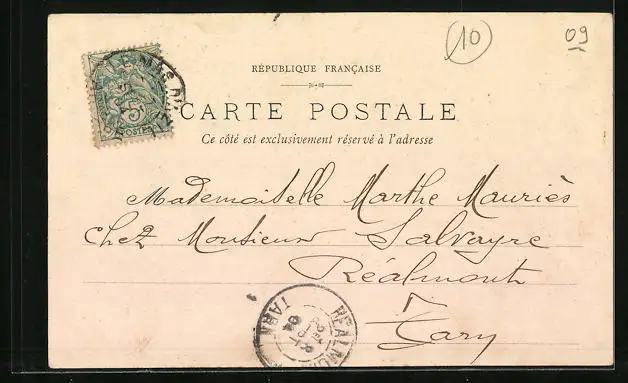 10
09
RÉPUBLIQUE FRANÇAISE
CARTE POSTALE
Ce côté est exclusivement réservé à l'adresse
5
POSTES
MAS
Mademoiselle Marthe Mauriès
Chez Monsieur Salvayre
Réalmont
Tarn
REALMONT
TARN
04